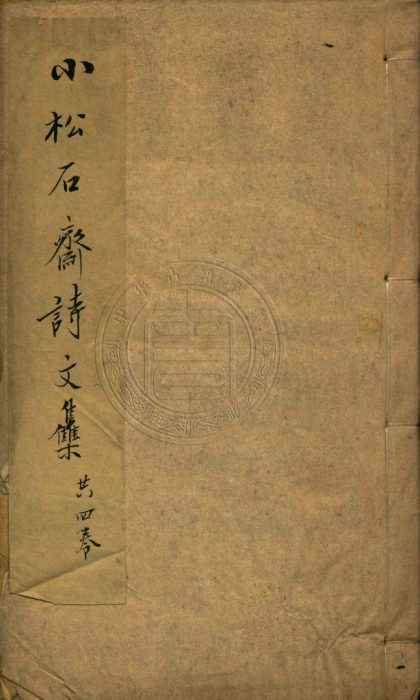 小松石齋詩文集 共四卷